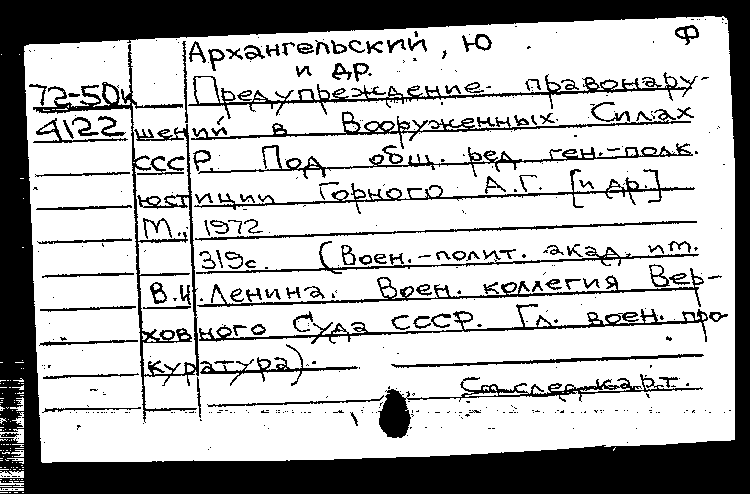 Ф
Архангельский, Ю
и др.
72-50к Предупреждение правонару-
4122 шений в Вооруженных Силах
СССР. Под общ. ред. ген.-полк.
юстиции Горного А.Г. [и др.]
М., 1972
319с. (Воен.-полит. акад. им.
В.И. Ленина. Воен. коллегия Вер-
ховного Суда СССР. Гл. воен. про-
куратура).
См след. карт.